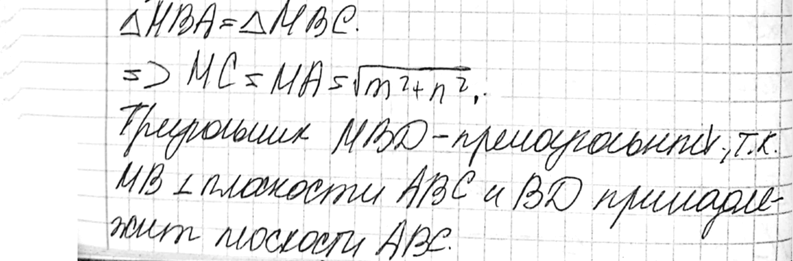 △MBA = △MBC.
=> MC = MA = √m²+n²,.
Треугольник MBD - прямоугольный, т.к.
MB ⊥ плоскости ABC и BD принадле-
жит плоскости ABC.